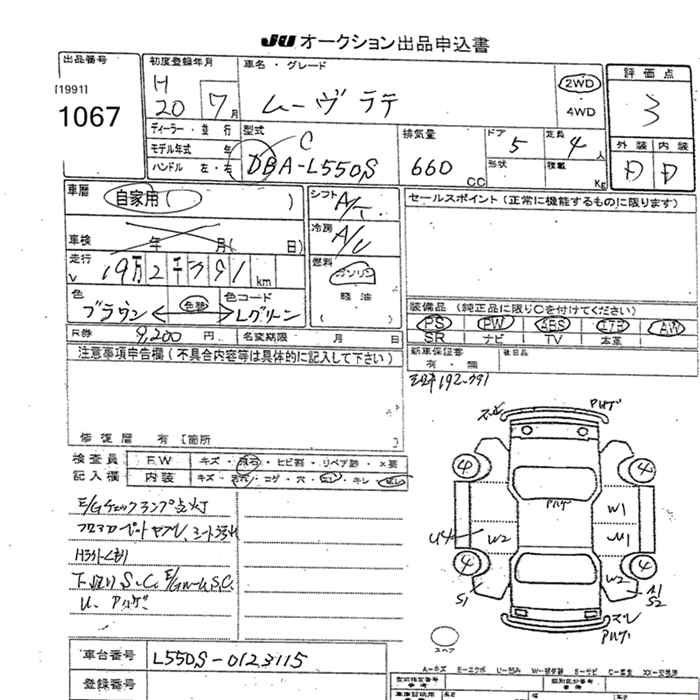 JU オークション出品申込書
出品番号
[1991]
1067
初度登録年月
H
20 7月
車名・グレード
ムーヴ ラテ
2WD
4WD
評価点
3
ディーラー・並行
モデル年式 年
ハンドル 左・右
型式
C
DBA-L550S
排気量
660
CC
ドア 5
形状
定員 4人
積載 Kg
外装 内装
D D
車歴
自家用( )
車検 年 月( 日)
走行
19万2千391 km
色
ブラウン
色替
色コード
Lグリーン
シフト
A/T
冷房
A/C
燃料
ガソリン
軽油
( )
セールスポイント(正常に機能するものに限ります)
装備品 (純正品に限り○を付けてください)
PS PW ABS エアB AW
SR ナビ TV 本革
R券 9,200 円 名変期限 月 日
新車保証書
有・無
後日品
192,391
注意事項申告欄(不具合内容等は具体的に記入して下さい)
修復歴 有[箇所 ]
検査員
記入欄
F.W キズ・飛石・ヒビ割・リペア跡・×要
内装 キズ・汚れ・コゲ・穴・・キレ・
E/Gチェックランプ点灯
フロアカーペットヤブレ、シート汚れ
下廻りS.C. S.C.
U. アルゲ
アルゲ
4 4
アルゲ
W1
U4 W2 U1
4 4
W2
S1 A1
S2
アルゲ
スペア
車台番号 L550S-0123115
登録番号
A-キズ E-エクボ U-凹み W-補修跡 S-サビ C-腐食 XX-交換済